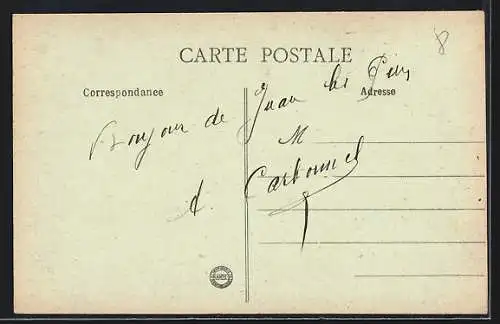 8
CARTE POSTALE
Correspondance
Adresse
Bonjour de Juan les Pins
M
Carbonnel